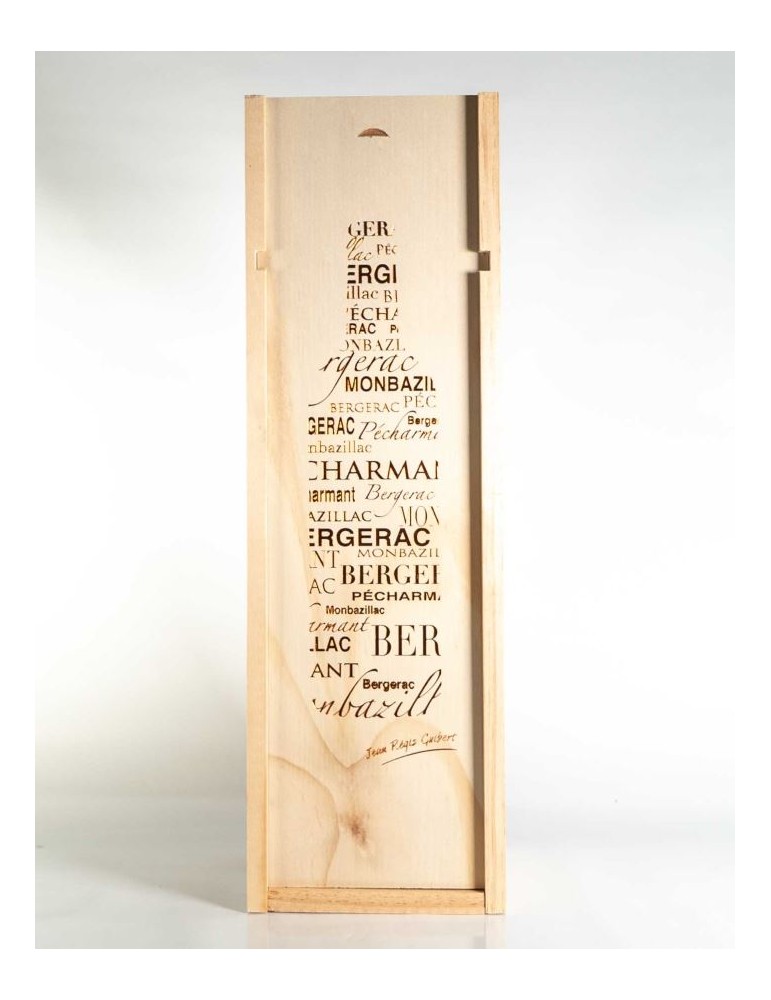 GER
lac PÉC
ERGI
illac BI
ÉCHA
RAC P
ONBAZL
rgerac
MONBAZIL
BERGERAC PÉC
GERAC Berge
Pécharma
nbazillac
CHARMAN
armant Bergerac
AZILLAC MON
ERGERAC
NT MONBAZIL
AC BERGER
PÉCHARMA
Monbazillac
armant
LLAC BER
ANT
Bergerac
nbazill
Jean Régis Guibert